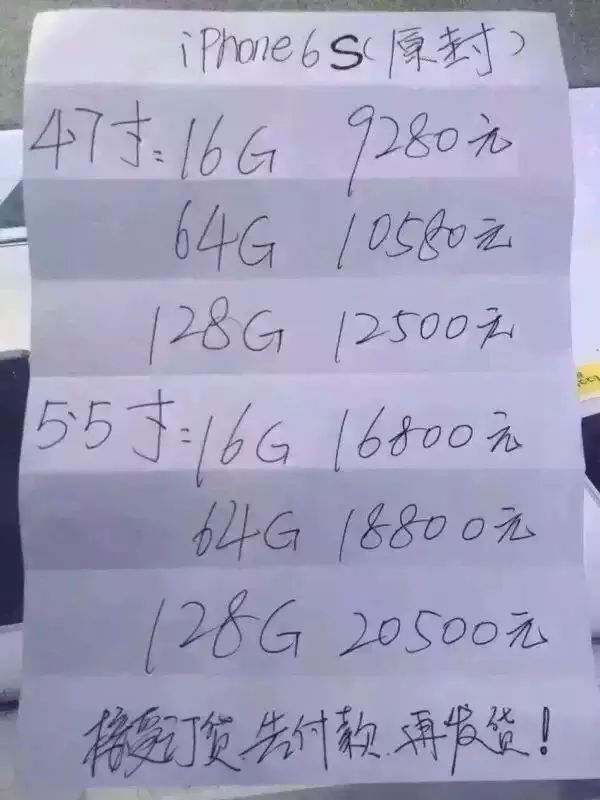 iPhone6S(原封)
4.7寸:16G 9280元
64G 10580元
128G 12500元
5.5寸:16G 16800元
64G 18800元
128G 20500元
接受订货.先付款.再发货!